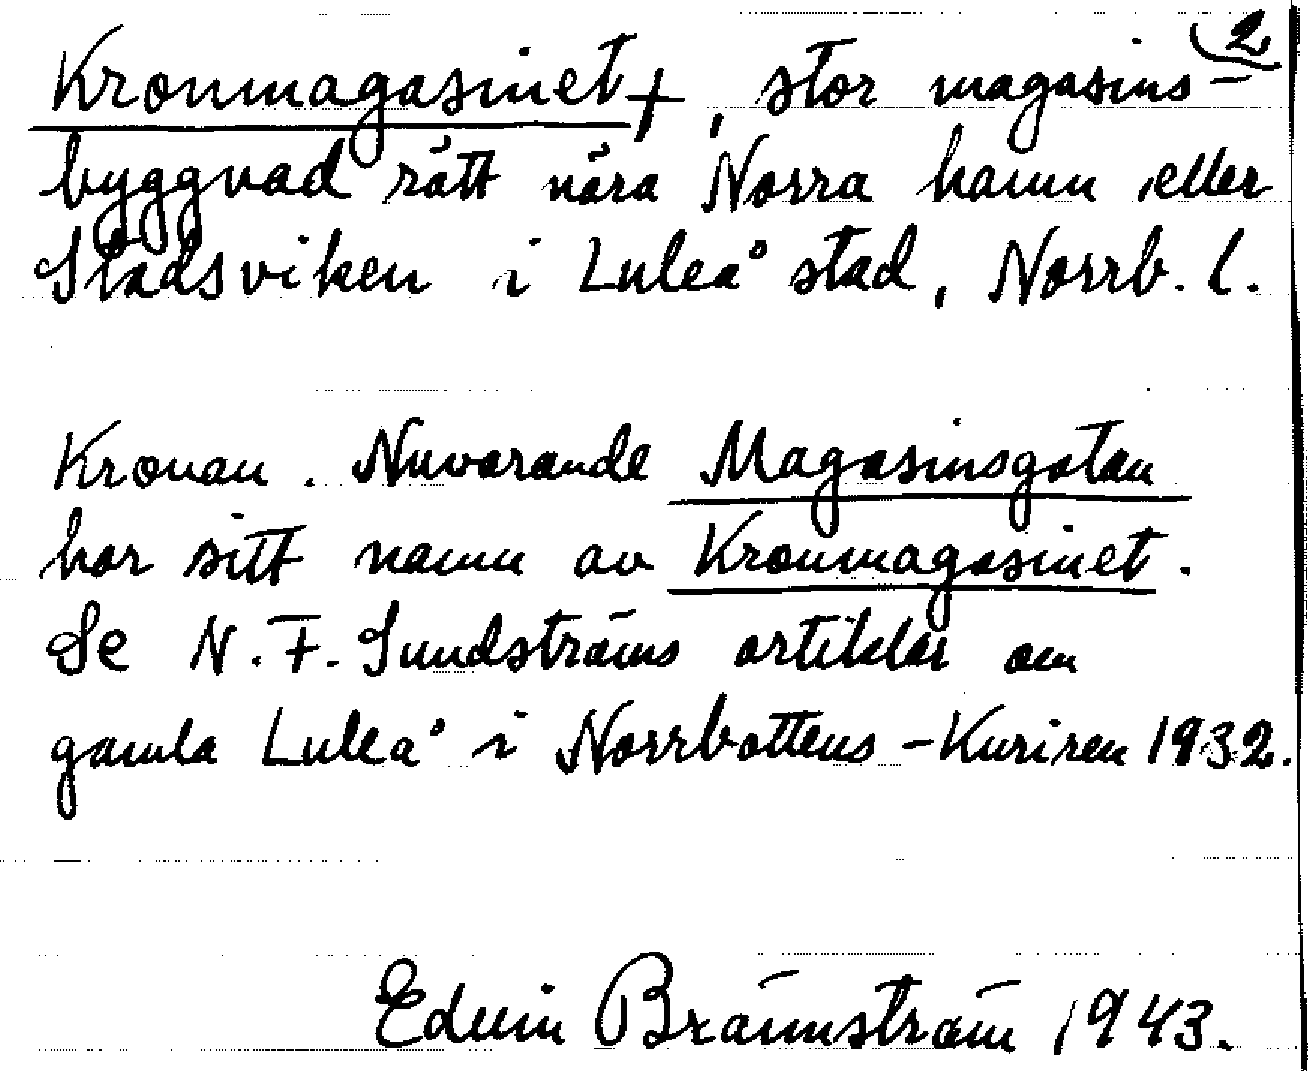 2
Kronmagasinet+, stor magasins-
byggnad rätt nära Norra hamn, eller
Stadsviken i Luleå stad, Norrb. l.
Kronan. Nuvarande Magasinsgatan
har sitt namn av Kronmagasinet.
Se N. F. Sundströms artiklar om
gamla Luleå i Norrbottens-Kuriren 1932.
Edvin Brännström 1943.